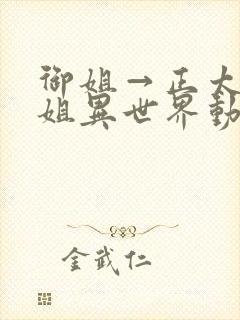 御姐→正太
姐異世界動
金武仁